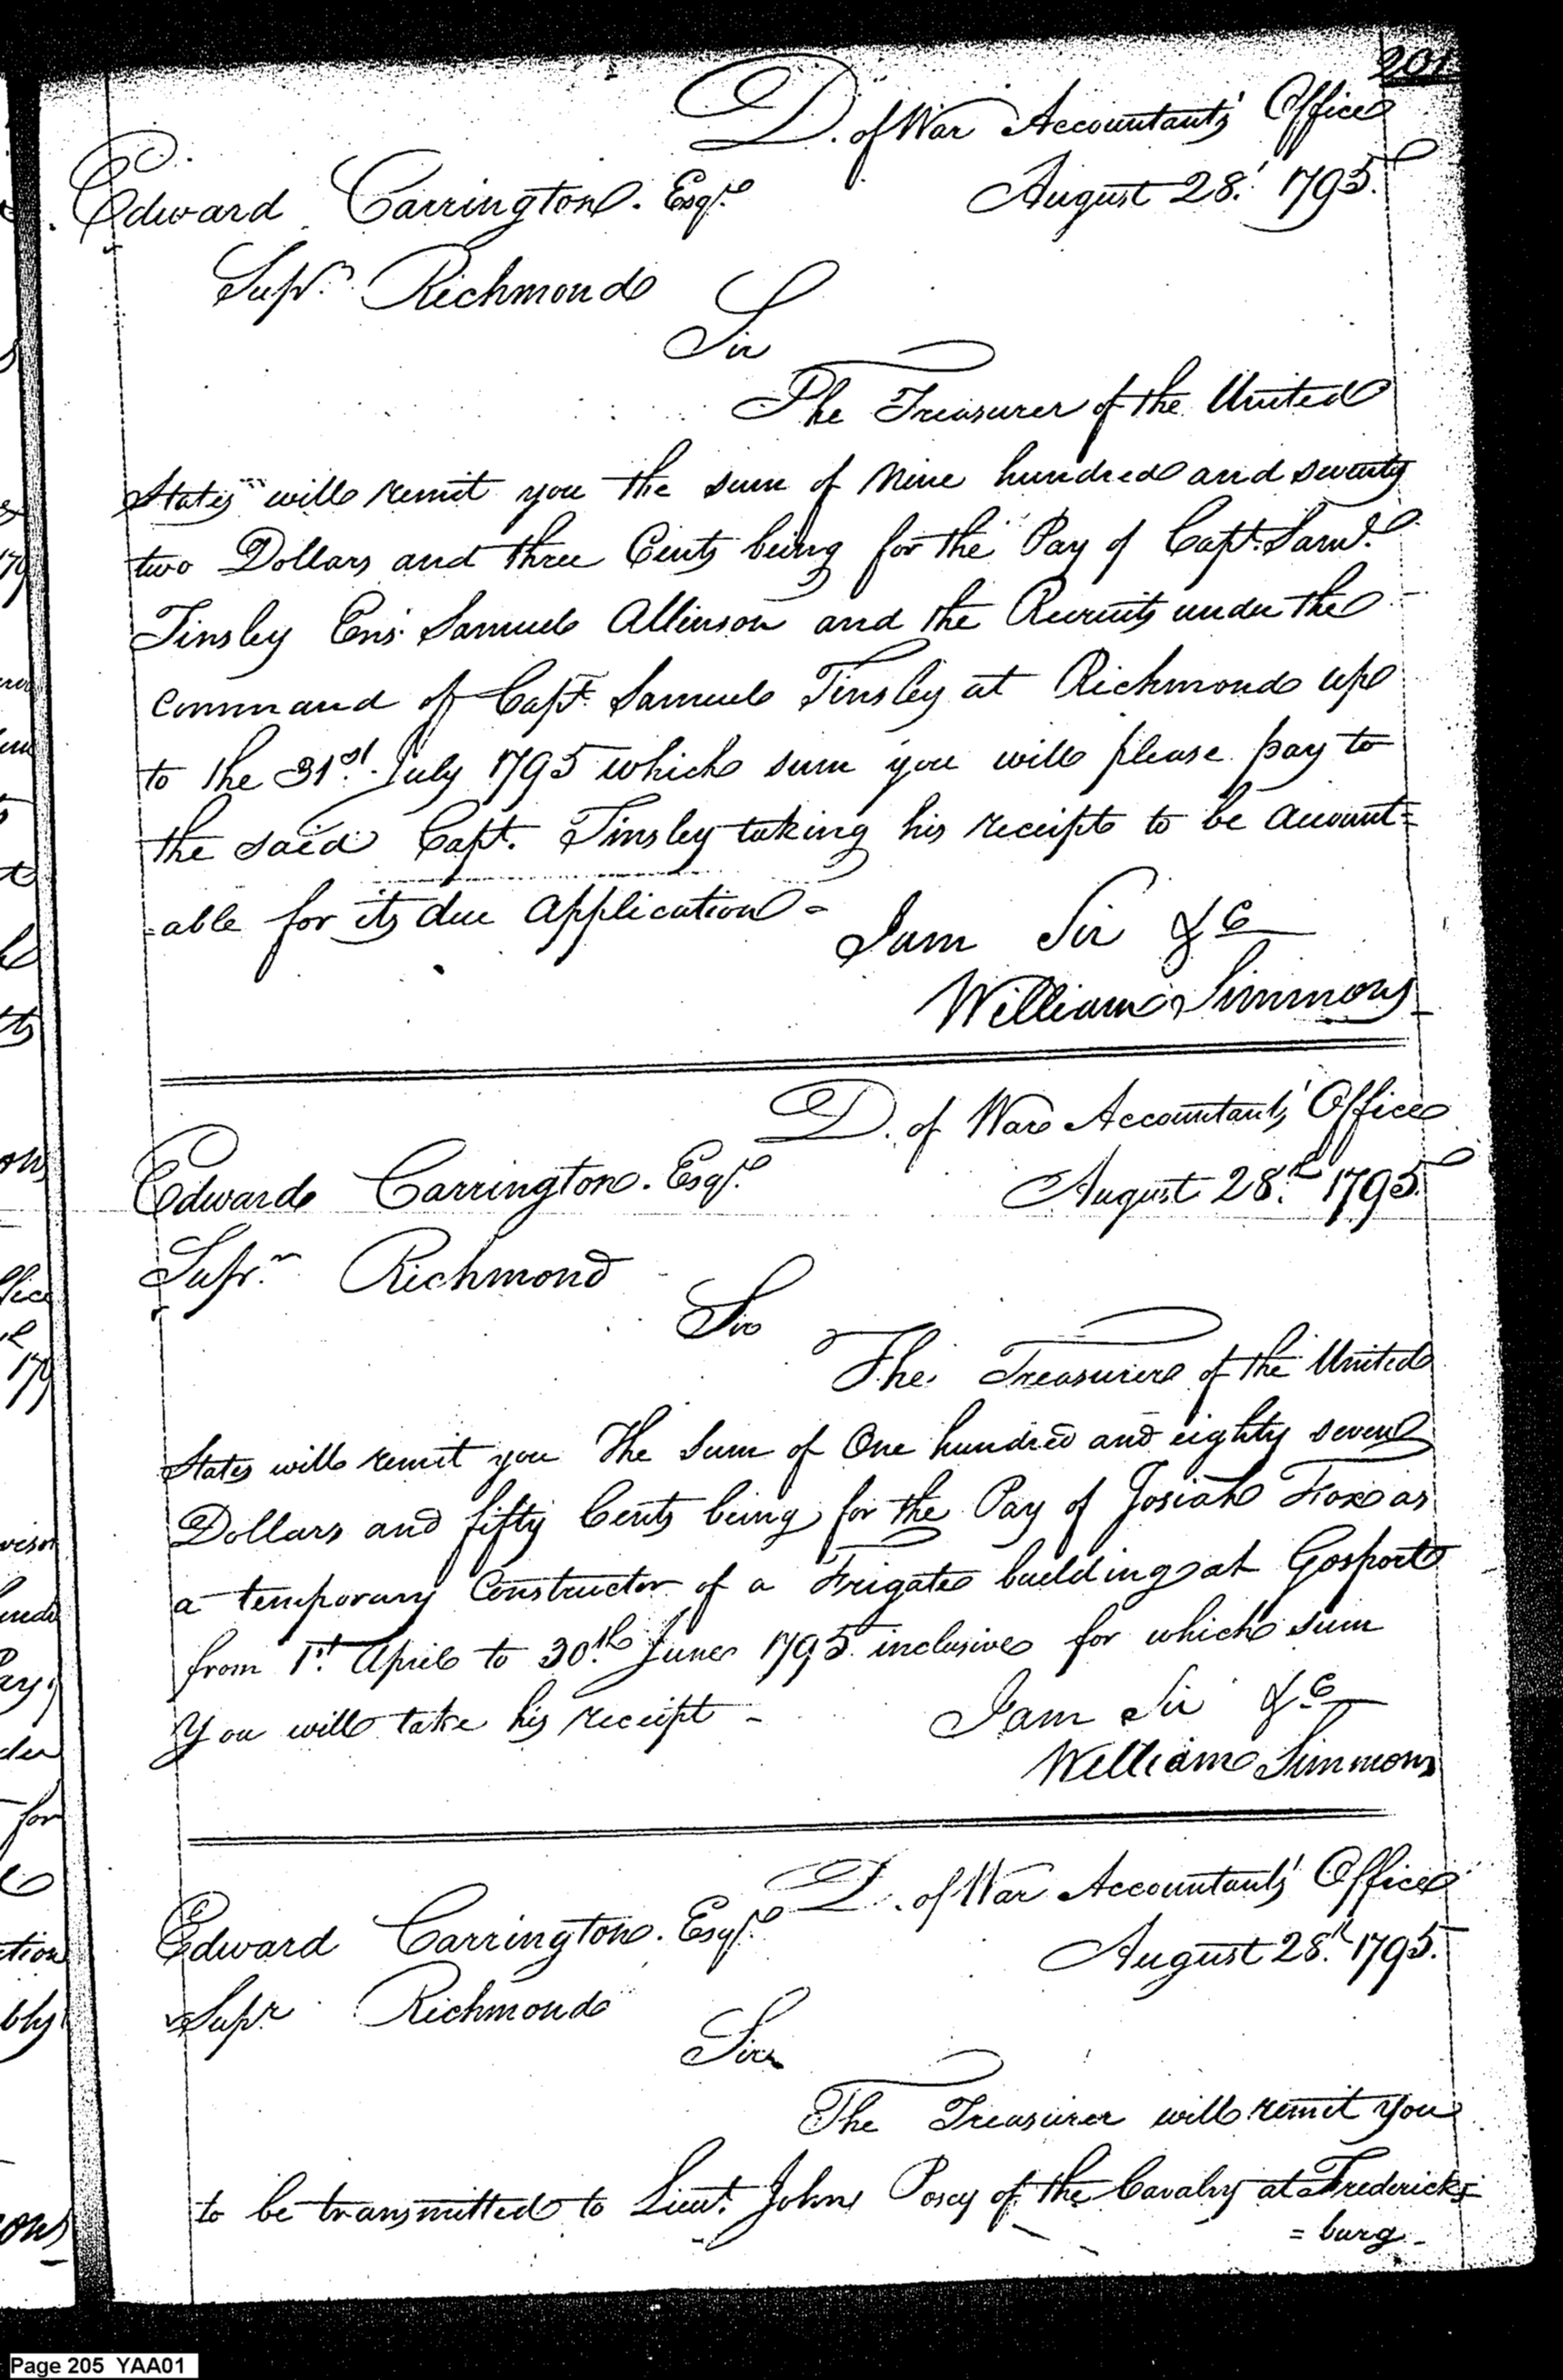 201
D. of War Accountants' Office
August 28th 1795.
Edward Carrington. Esqr.
Supr. Richmond
Sir
The Treasurer of the United
States will remit you the sum of Nine hundred and seventy
two Dollars and three Cents being for the Pay of Capt. Saml.
Tinsley Ens. Samuel Allinson and the Recruits under the
command of Capt. Samuel Tinsley at Richmond up
to the 31st. July 1795 which sum you will please pay to
the said Capt. Tinsley taking his receipt to be account=
=able for its due application -
I am Sir &c
William Simmons
D. of War Accountants' Office
August 28th. 1795.
Edward Carrington. Esqr.
Supr. Richmond
Sir
The Treasurer of the United
States will remit you The Sum of One hundred and eighty seven
Dollars and fifty Cents being for the Pay of Josiah Fox as
a temporary Constructor of a Frigate building at Gosport
from 1st. April to 30th. June 1795 inclusive for which sum
You will take his receipt -
I am Sir &c
William Simmons
D. of War Accountants' Office
August 28th. 1795.
Edward Carrington. Esqr.
Supr. Richmond
Sir
The Treasurer will remit you
to be transmitted to Lieut. John Posey of the Cavalry at Fredericks=
=burg
Page 205 YAA01